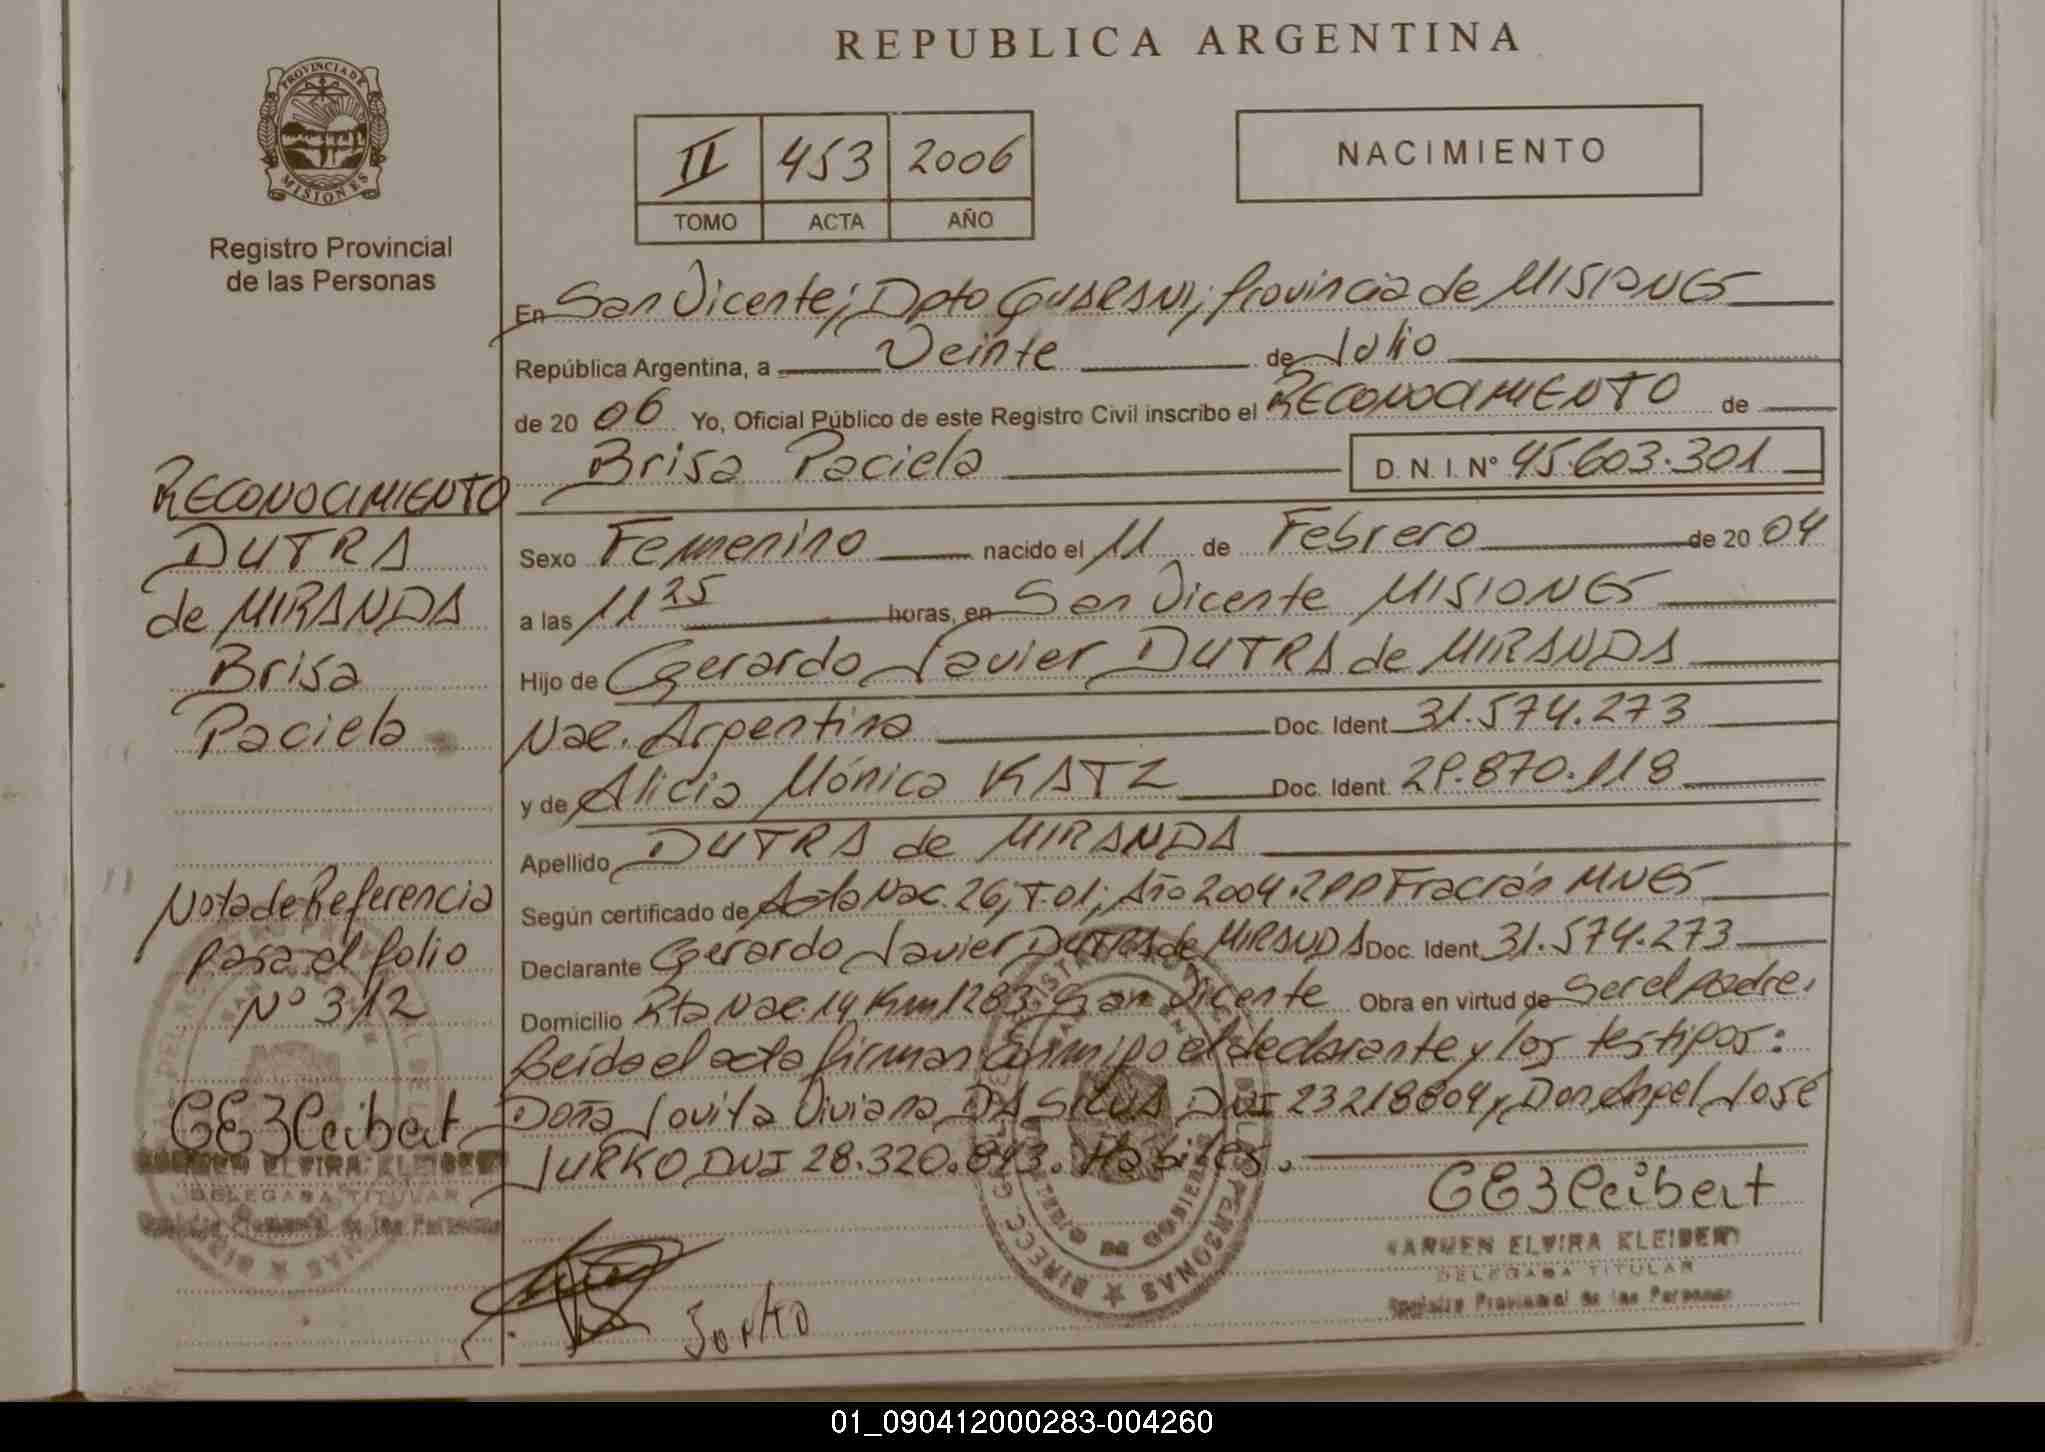 REPUBLICA ARGENTINA
PROVINCIA DE
MISIONES
Registro Provincial
de las Personas
II 453 2006
TOMO ACTA AÑO
NACIMIENTO
En San Vicente; Dpto GUARANI; Provincia de MISIONES
República Argentina, a Veinte de Julio
de 20 06 Yo, Oficial Público de este Registro Civil inscribo el RECONOCIMIENTO de
Brisa Paciela D. N. I. N° 45.603.301
Sexo Femenino nacido el 11 de Febrero de 20 04
a las 11 25 horas, en San Vicente MISIONES
Hijo de Gerardo Javier DUTRA de MIRANDA
Nac. Argentina Doc. Ident. 31.574.273
y de Alicia Mónica KATZ Doc. Ident. 29.870.118
Apellido DUTRA de MIRANDA
Según certificado de Acta Nac. 26; T. 01; Año 2004 Fracrán MNES
Declarante Gerardo Javier DUTRA de MIRANDA Doc. Ident. 31.574.273
Domicilio Rta Nac. 14 Km 1283 San Vicente Obra en virtud de ser el padre.
Leída el acta firman conmigo el declarante y los testigos:
Doña Jovita Viviana DA SILVA DNI 23218804 y Don Angel José
JURKO DNI 28.320.843. Hábiles.
RECONOCIMIENTO
DUTRA
de MIRANDA
Brisa
Paciela
Nota de Referencia
pasa al folio
N° 312
CE3Leibert
CARMEN ELVIRA KLEIBERT
DELEGADA TITULAR
Registro Provincial de las Personas
Jurko
CE3Leibert
CARMEN ELVIRA KLEIBERT
DELEGADA TITULAR
Registro Provincial de las Personas
01_090412000283-004260